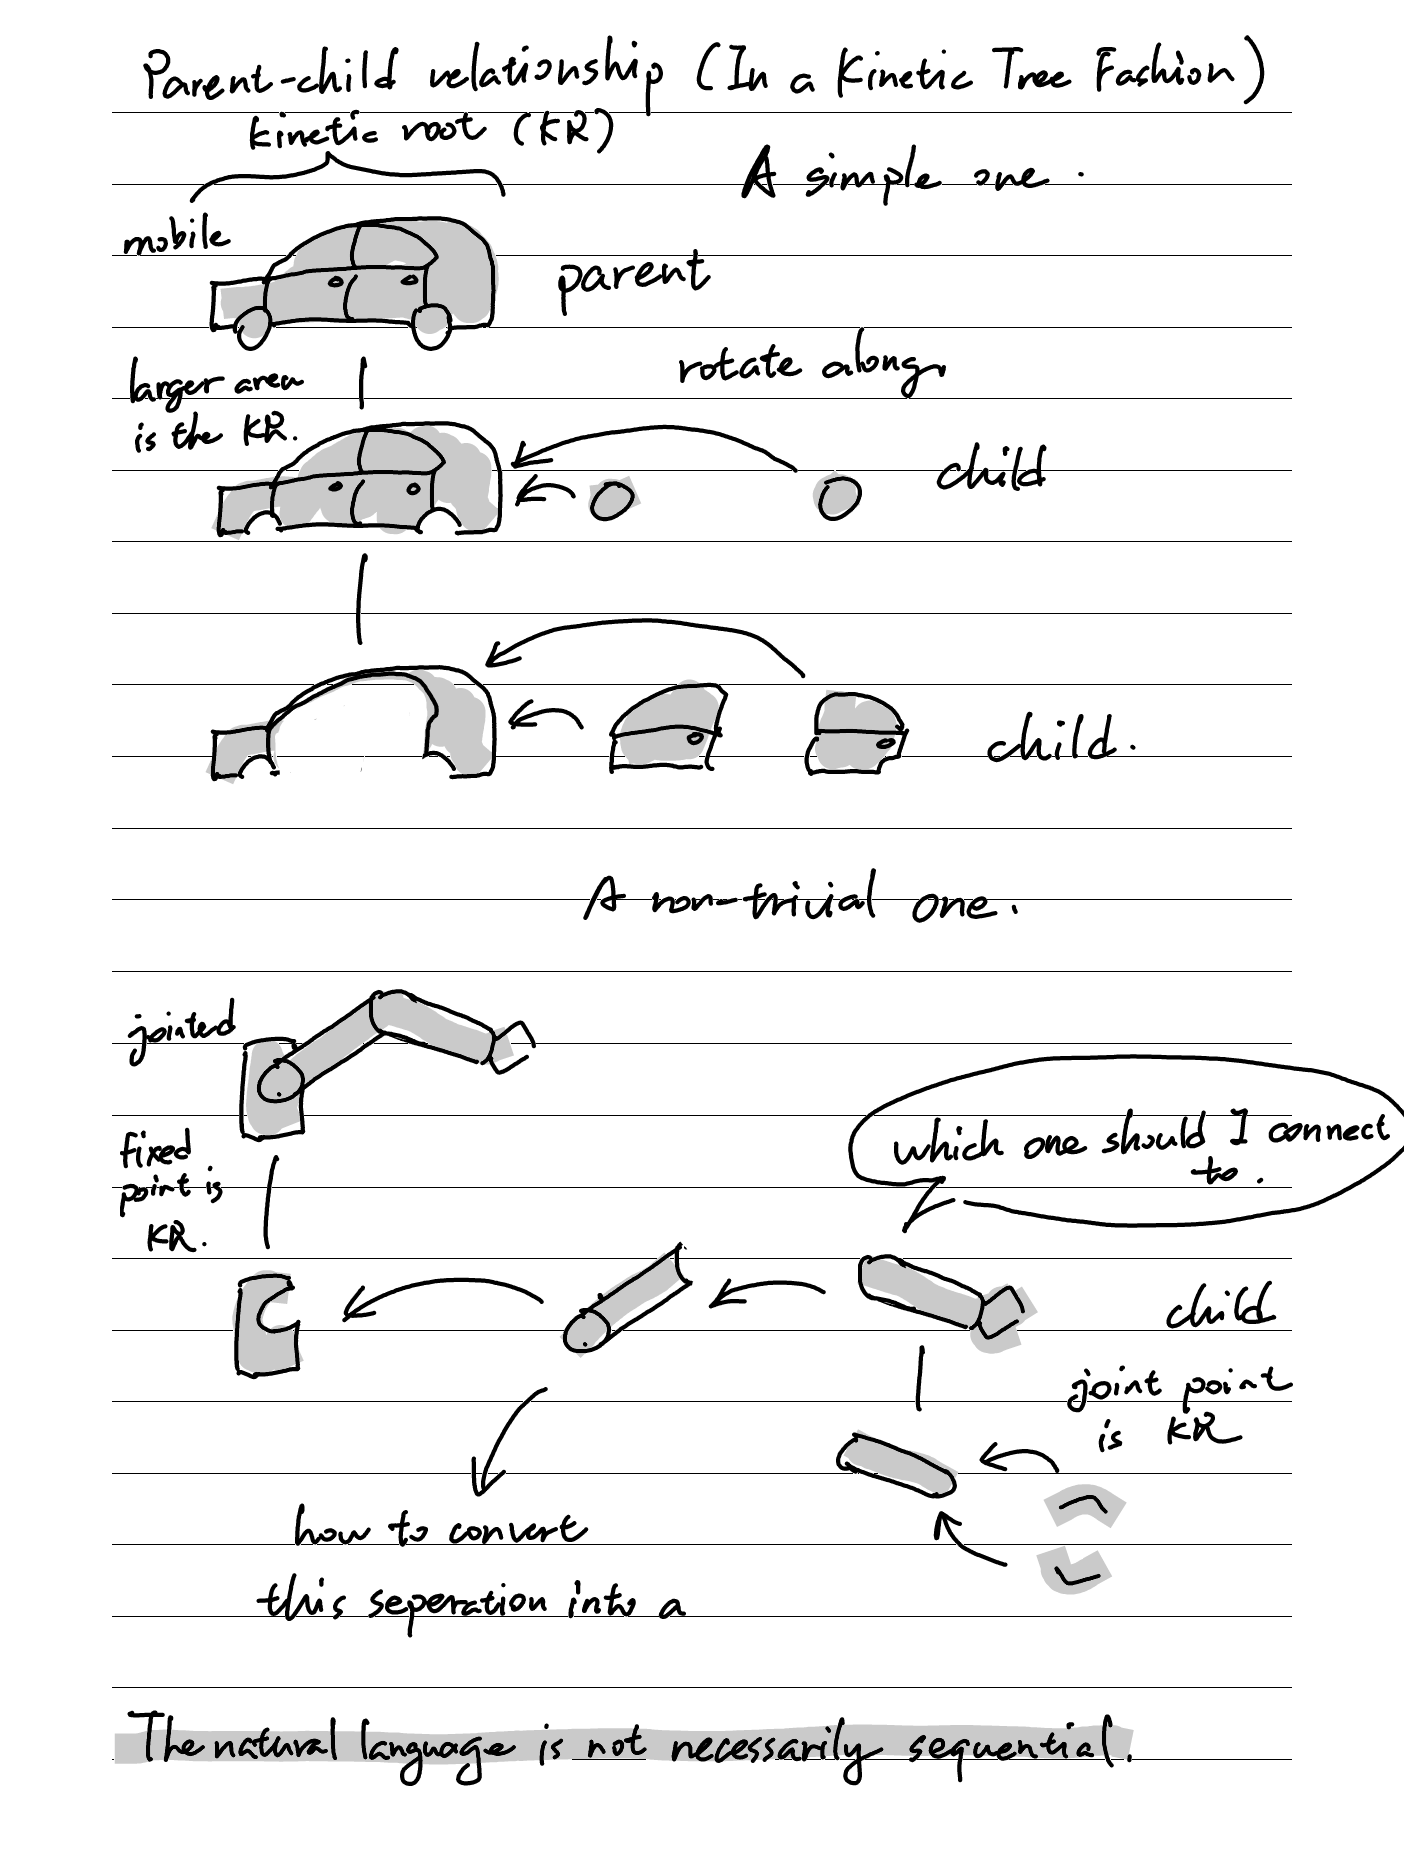 Parent-child relationship (In a Kinetic Tree Fashion)
kinetic root (KR)
A simple one.
mobile
parent
rotate along
larger area
is the KR.
child
child.
A non-trivial one.
jointed
which one should I connect
to.
fixed
point is
KR.
child
joint point
is KR
how to convert
this seperation into a
The natural language is not necessarily sequential.